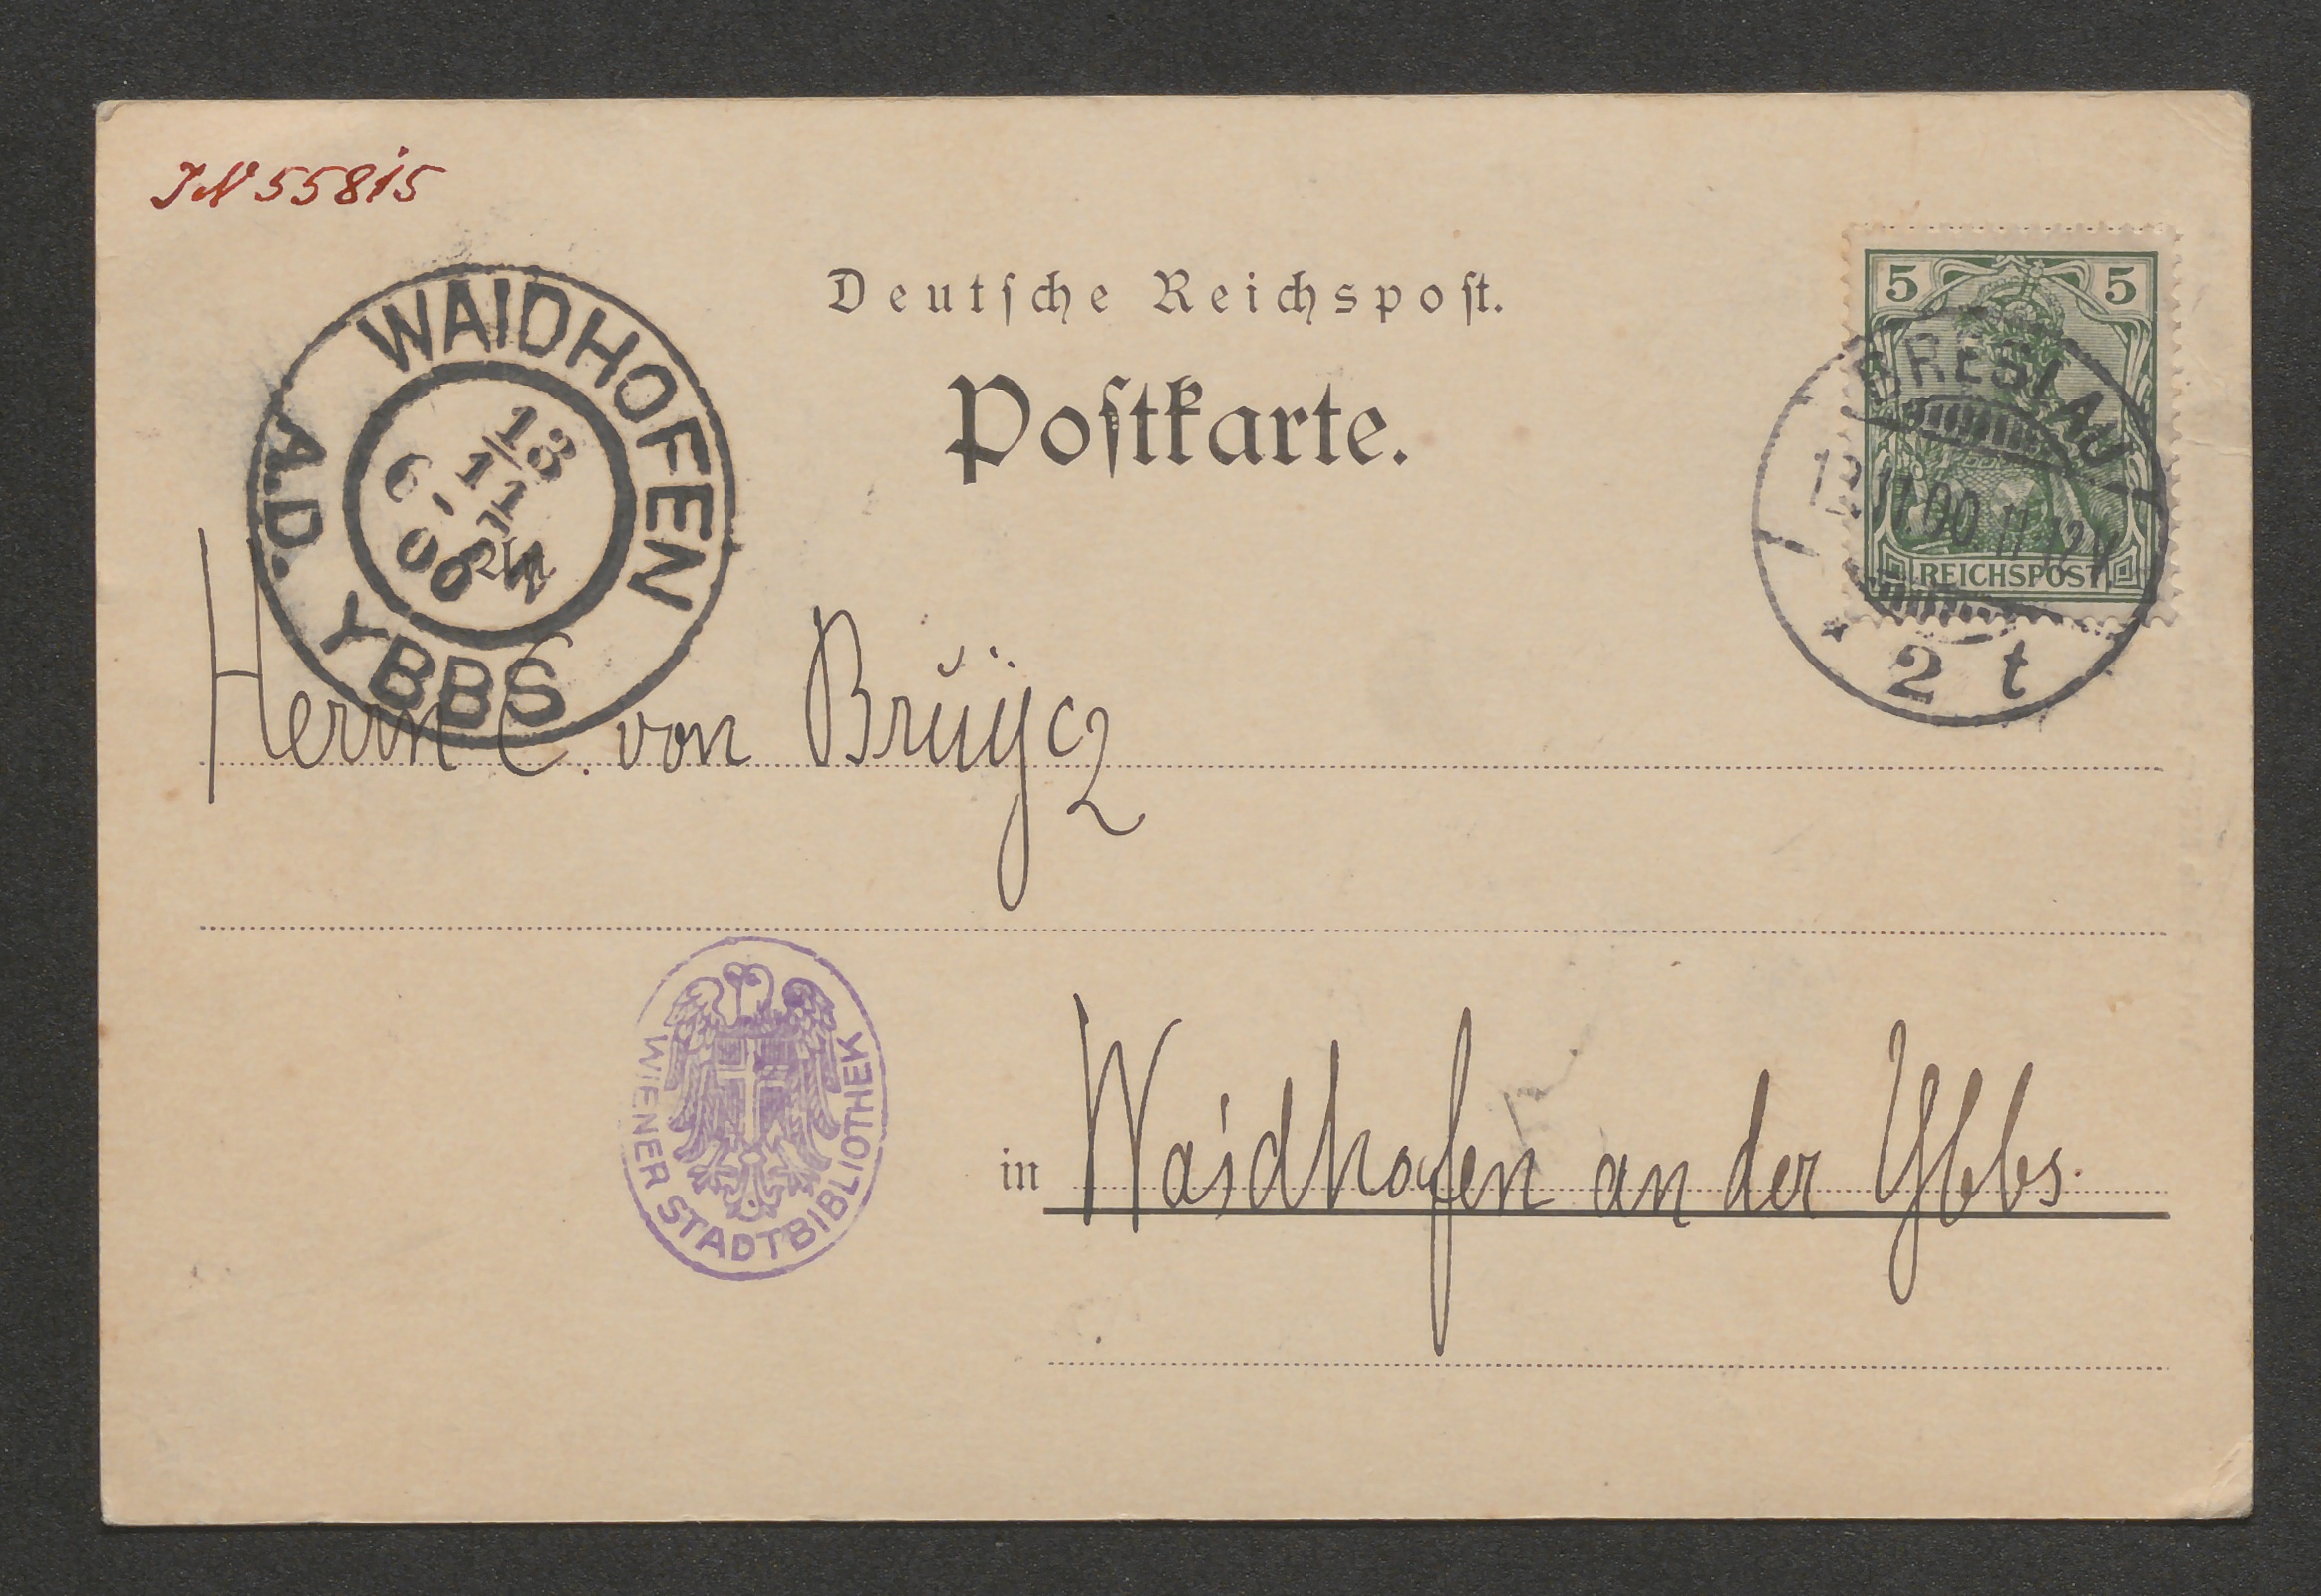 JN 55815
Deutſche Reichspoſt.
Poſtkarte.
5 5
REICHSPOST
BRESLAU
12.11.00 11-12V
* 2 t
WAIDHOFEN
A.D. YBBS
13/11
6
00
Herrn C. von Bruÿck
WIENER STADTBIBLIOTHEK
in Waidhofen an der Ybbs.